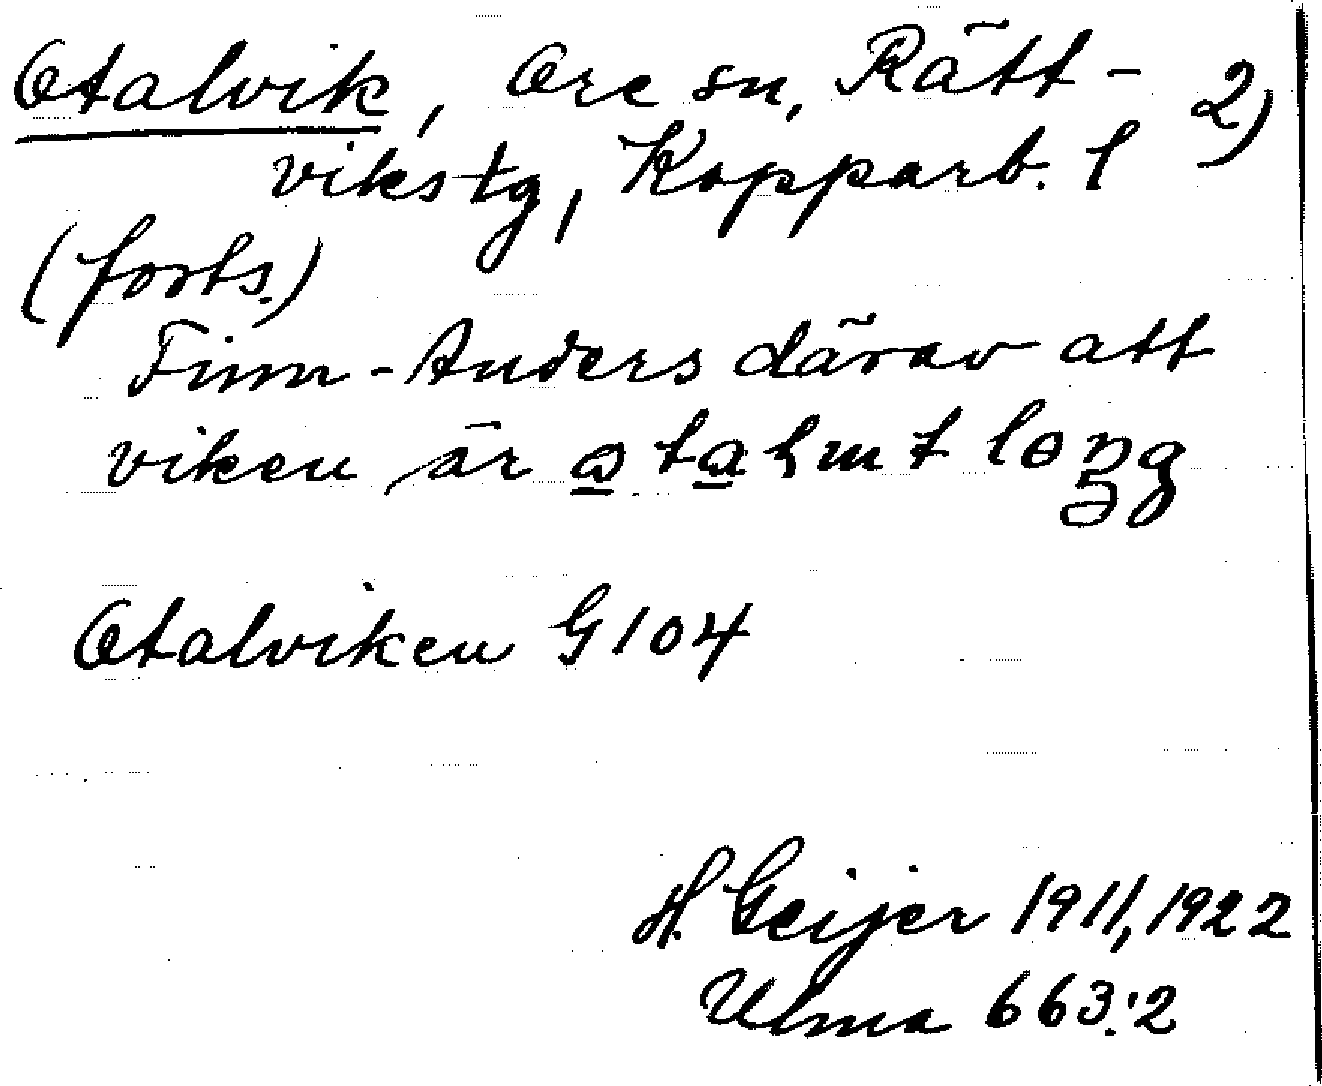 Otalvik, Ore sn, Rätt- 2)
vikstg, Kopparb. l
(forts.)
Finn-Anders därav att
viken är
Otalviken G 104
H. Geijer 1911, 1922
Ulma 663:2